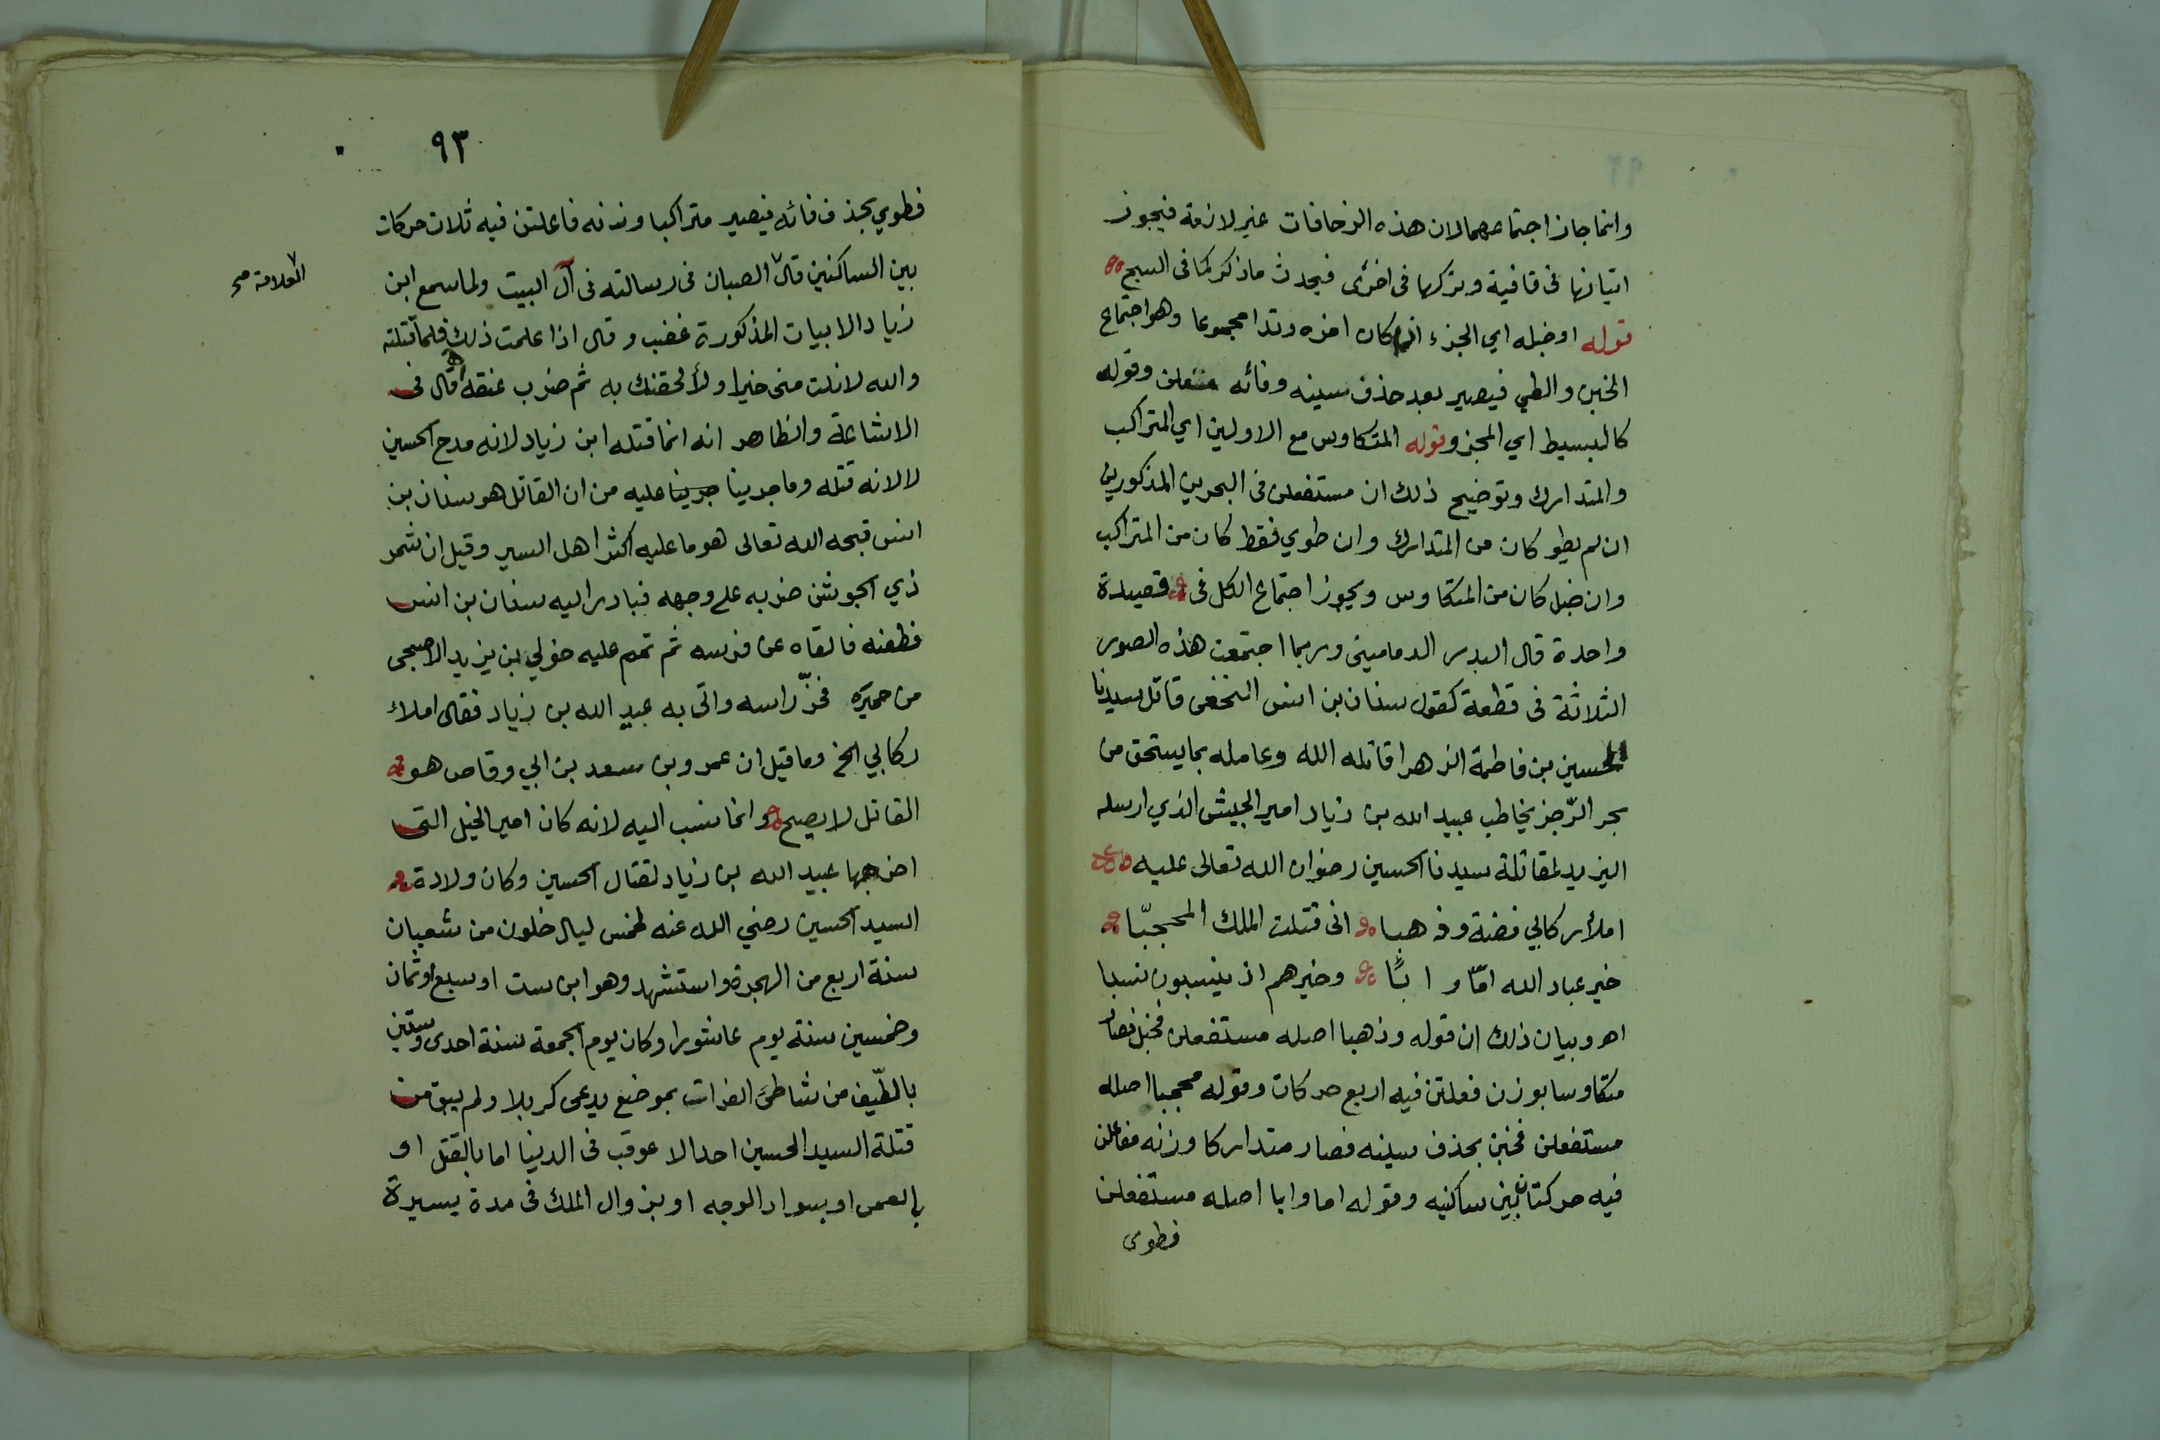 وانما جاز اجتماعهما لان هذه الزحافات غير لازمة فيجوز
اتيانها فى قافية وتركها فى اخرى فيحدث ما ذكر كما فى السبج
قوله او خبله اي الجزء ان كان اخره وتدا مجموعا وهو اجتماع
الخبن والطي فيصير بعد حذف سينه وفائه متعلن وقوله
كالبسيط اي المجزو وقوله المتكاوس مع الاولين اي المتراكب
والمتدارك وتوضيح ذلك ان مستفعلن فى البحرين المذكورين
ان لم يطو كان من المتدارك وان طوي فقط كان من المتراكب
وان خبل كان من المتكاوس ويجوز اجتماع الكل فى قصيدة
واحدة قال البدر الدمامينى وربما اجتمعت هذه الصور
الثلاثة فى قطعة كقول سنان بن انس النخعى قاتل سيدنا
الحسين بن فاطمة الزهرا قاتله الله وعامله بما يستحق من
بحر الرّجز يخاطب عبيد الله بن زياد امير الجيش الذي ارسله
اليزيد لمقاتلة سيدنا الحسين رضوان الله تعالى عليه
املأ ركابي فضة وذهبا انى قتلت الملك المحجبّا
خير عباد الله امّا و ابًّا وخيرهم اذ ينسبون نسبا
اهـ وبيان ذلك ان قوله وذهبا اصله مستفعلن فخبل فصار
متكاوسا بوزن فعلتن فيه اربع حركات وقوله محجبا اصله
مستفعلن فخبن بحذف سينه فصار متداركا وزنه مفاعلن
فيه حركتان بين ساكنيه وقوله اما وابا اصله مستفعلن
فطوى
٩٣
فطوي بحذف فائه فيصير متراكبا وزنه فاعلتن فيه ثلاث حركات
بين الساكنين قال الصبان فى رسالته فى آل البيت ولما سمع ابن
العلامة صح
زياد الابيات المذكورة غضب وقال اذا علمت ذلك فلم قتلته
والله لا نلت منى خيرا ولألحقنك به ثم ضرب عنقه اهـ قال فى
الاشاعة والظاهر انه انما قتله ابن زياد لانه مدح الحسين
لا لانه قتله وما جرينا جرينا عليه من ان القاتل هو سنان بن
انس قبحه الله تعالى هو ما عليه اكثر اهل السير وقيل ان شمر
ذي الجوشن ضربه على وجهه فبادر اليه سنان بن انس
فطعنه فالقاه عن فرسه ثم تمم عليه خولي بن يزيد الاصبحى
من حميره فحزّ راسه واتى به عبيد الله بن زياد فقال املاء
ركابي الخ وما قيل ان عمرو بن سعد بن ابي وقاص هو
القاتل لا يصح وانما نسب اليه لانه كان امير الخيل التى
اخرجها عبيد الله بن زياد لقتال الحسين وكان ولادة
السيد الحسين رضي الله عنه لخمس ليال خلون من شعبان
سنة اربع من الهجرة واستشهد وهو ابن ست او سبع او ثمان
وخمسين سنة يوم عاشورا وكان يوم الجمعة سنة احدى وستين
بالطّيف من شاطئ الفرات بموضع يدعى كربلا ولم يبق من
قتلة السيد الحسين احد الا عوقب فى الدنيا اما بالقتل او
بالعمى او بسواد الوجه او بزوال الملك فى مدة يسيرة